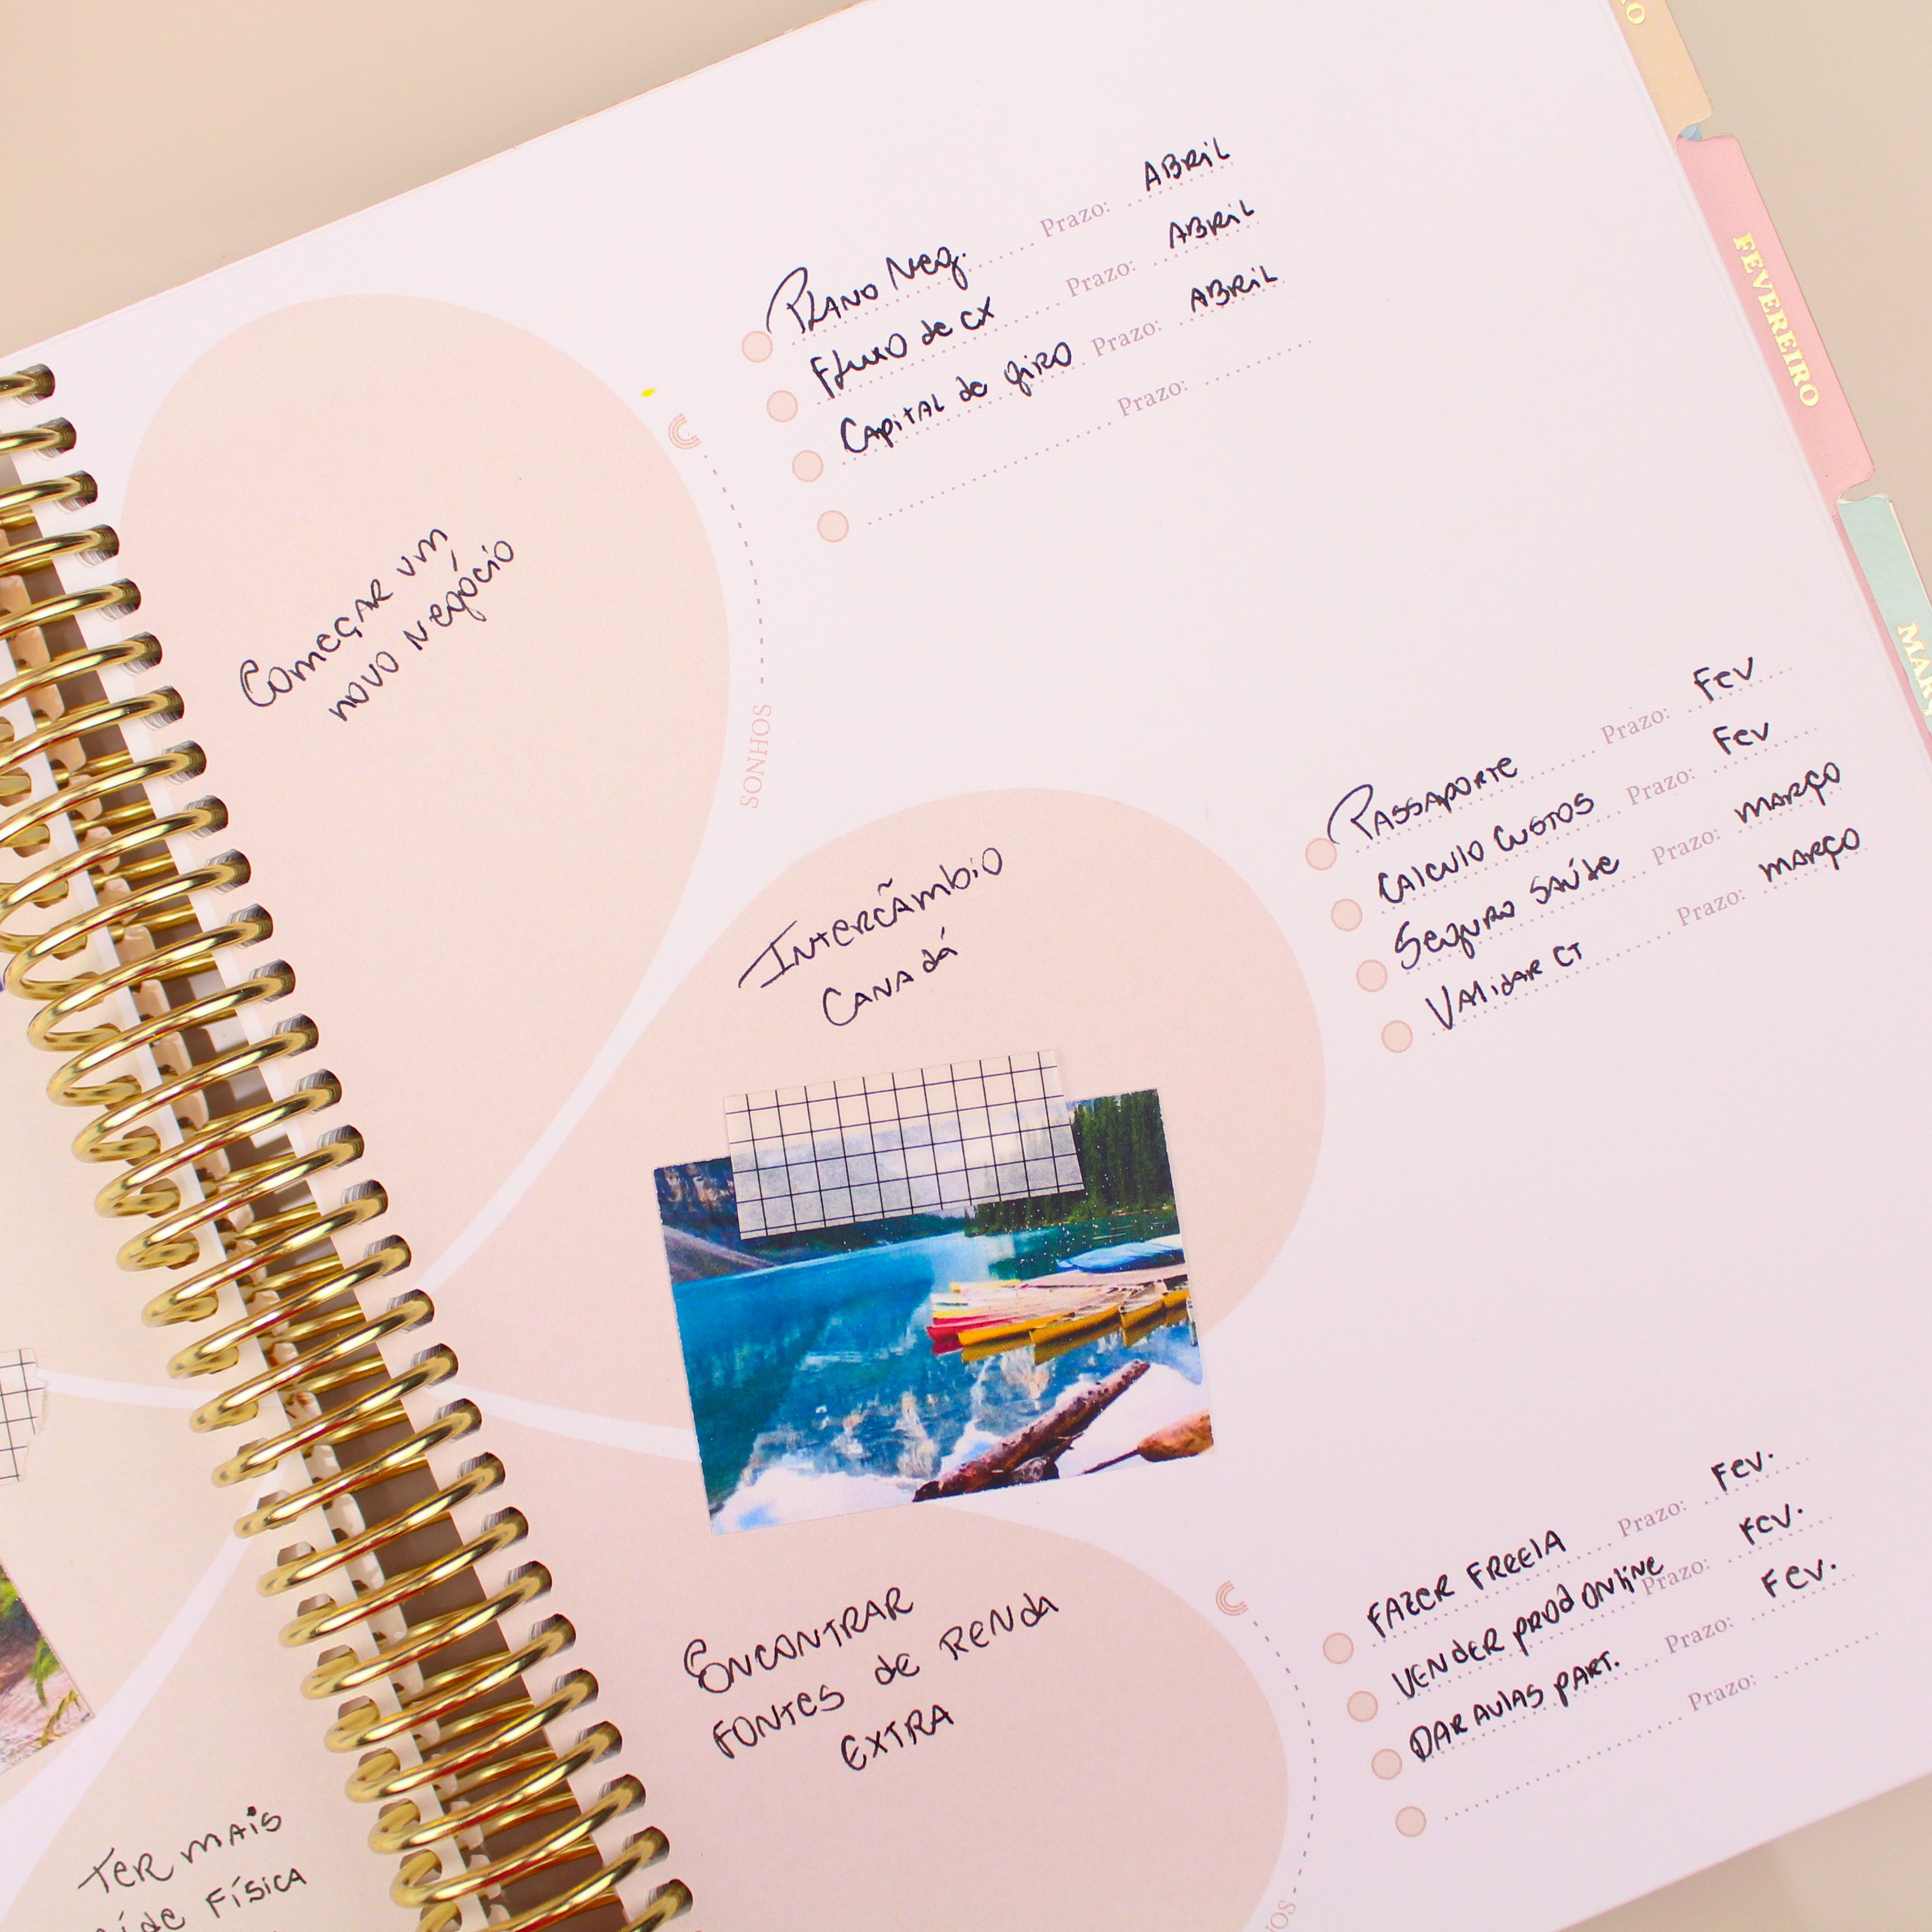 COMEÇAR UM
NOVO NEGÓCIO
SONHOS
PLANO NEG. Prazo: ABRIL
FLUXO de CX Prazo: ABRIL
CAPITAL de giRO Prazo: ABRIL
Prazo:
INTERCÃMBIO
CANADÁ
PASSAPORTE Prazo: FEV
CALCULO CUSTOS Prazo: FEV
SEGURO SAÚDE Prazo: MARÇO
VALIDAR CT Prazo: MARÇO
ENCONTRAR
FONTES de RENDA
EXTRA
FAZER FREELA Prazo: FEV.
VENDER PROD ONLINE Prazo: FEV.
DAR AULAS PART. Prazo: FEV.
Prazo:
TER MAIS
FÍSICA
FEVEREIRO